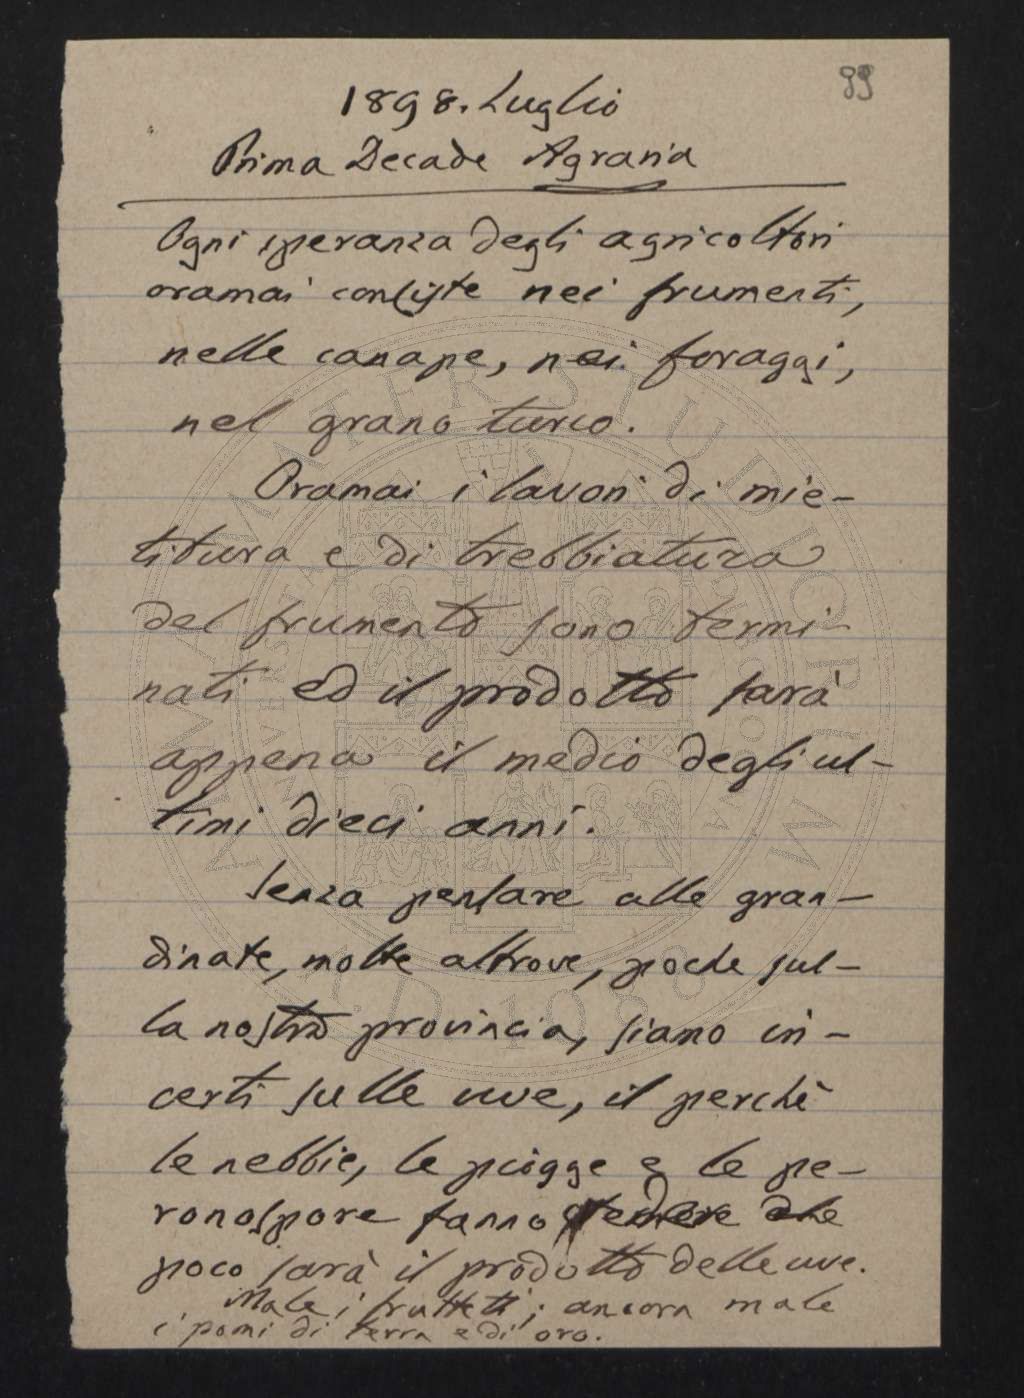 99
1898. Luglio
Prima Decade Agraria
Ogni speranza degli agricoltori
oramai consiste nei frumenti,
nelle canape, nei foraggi,
nel grano turco.
Oramai i lavori di mie-
titura e di trebbiatura
del frumento sono termi-
nati ed il prodotto sarà
appena il medio degli ul-
timi dieci anni.
Senza pensare alle gran-
dinate, molte altrove, poche sul-
la nostra provincia, siamo in-
certi sulle uve, il perchè
le nebbie, le piogge e le pe-
ronospore fanno temere che
poco sarà il prodotto delle uve.
Male i frutteti; ancora male
i pomi di terra e di oro.
ALMA MATER STUDIORUM
A.D. 1088